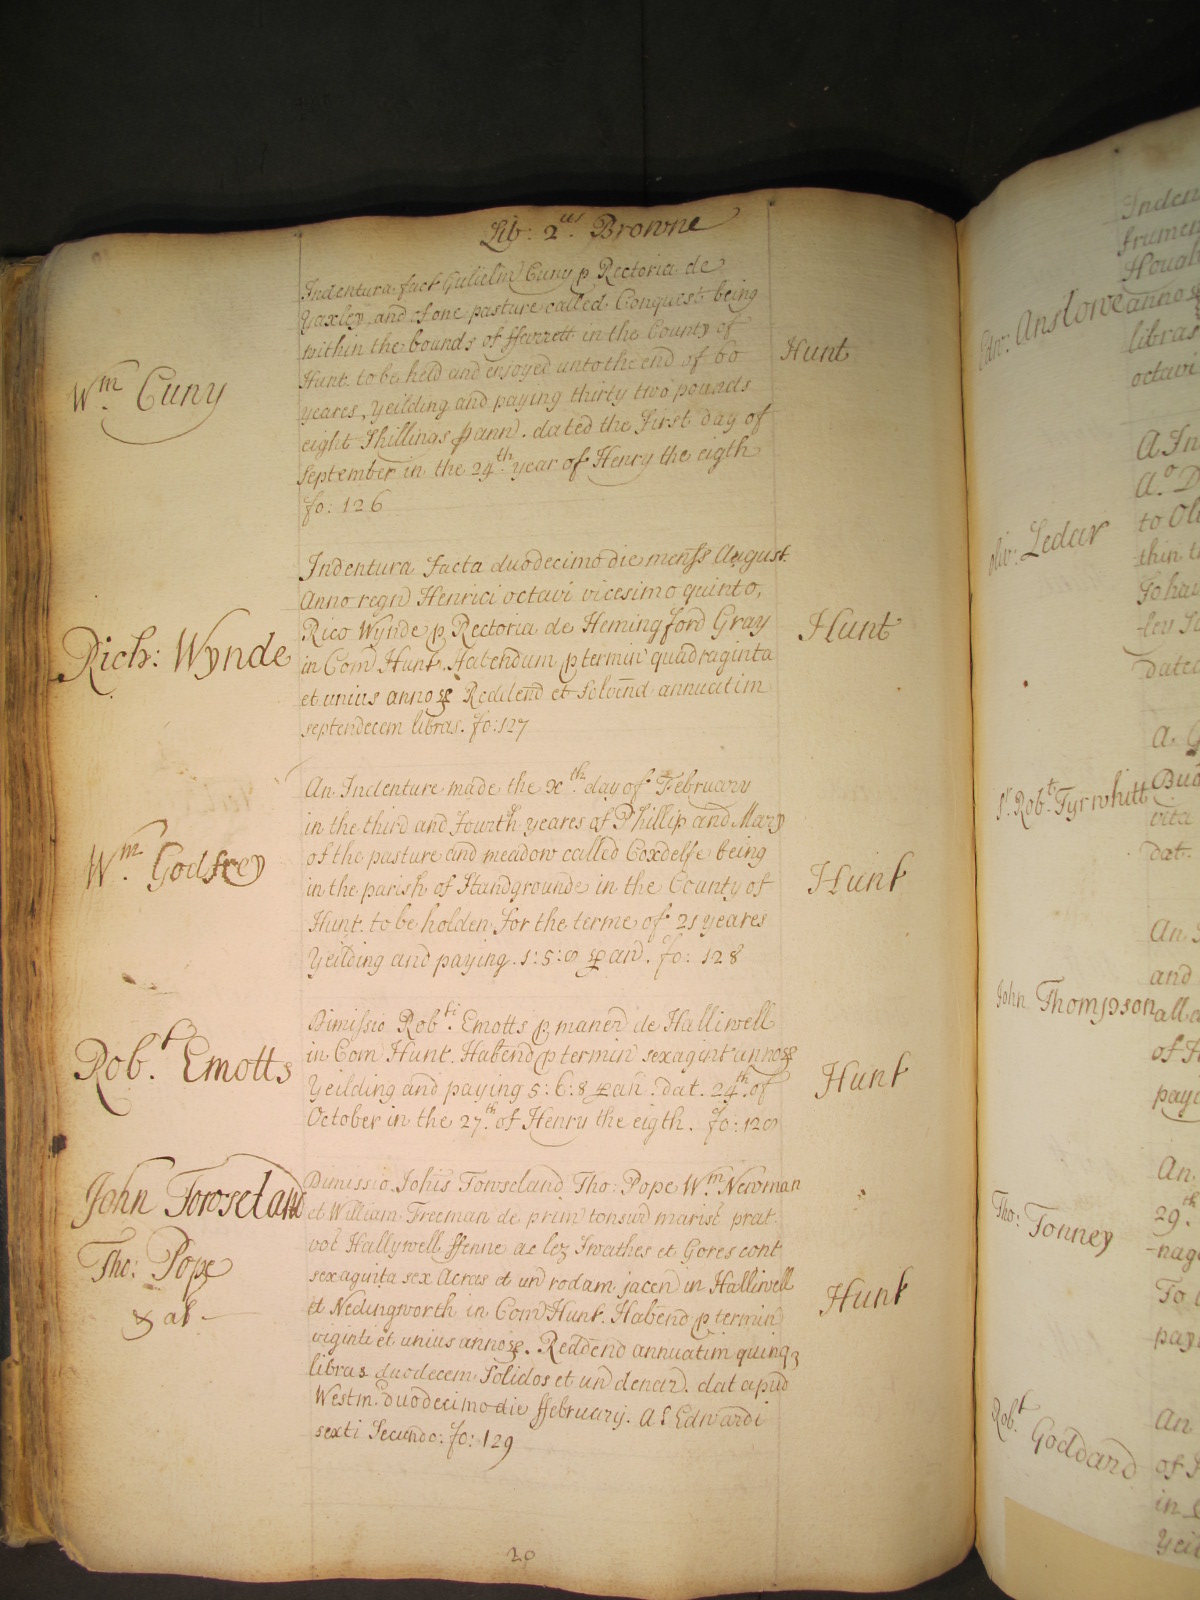 Lib: 2us. Browne
Wm. Cuny
Indentura fact Gulielm Cuny p Rectoria de
Yaxley, and of one pasture called Conquest being
within the bounds of ffarrett in the County of
Hunt. to be held and enjoyed unto the end of 60
yeares, Yeilding and paying thirty two pounds
eight Shillings p ann. dated the First day of
September in the 24th year of Henry the eigth
fo: 126
Hunt
Rich: Wynde
Indentura Facta duodecimo die menss August.
Anno regn Henrici octavi vicesimo quinto,
Rico Wynde p Rectoria de Hemingford Gray
in Com Hunt. Habendum p termin quadraginta
et unius annoꝝ Reddend et Solvend annuatim
septendecem libras. fo: 127
Hunt
Wm. Godfrey
An Indenture made the xth. day of February
in the third and Fourth yeares of Phillip and Mary
of the pasture and meadow called Coxdelfe being
in the parish of Handgrounde in the County of
Hunt. to be holden For the terme of 21 yeares
Yeilding and paying. 1: 5: 0 p an. fo: 128
Hunt
Robt. Emotts
Dimissio Robti. Emotts p maner de Halliwell
in Com Hunt. Habend p termin sexagint annoꝝ
Yeilding and paying 5: 6: 8 p an. dat. 24th. of
October in the 27th. of Henry the eigth. fo: 128
Hunt
John Towseland
Tho: Pope
& al
Dimissio Johis Towseland Tho: Pope Wm. Newman
et William Freeman de prim tonsur marist prat
voc Hallywell ffenne ac lez Swathes et Gores cont
sexaginta sex Acras et un rodam jacen in Halliwell
et Nedingworth in Com Hunt. Habend p termin
viginti et unius annoꝝ. Reddend annuatim quinqꝫ
libras duodecem Solidos et un denar. dat apud
Westm. duodecimo die ffebruarij. A E Edwardi
sexti Secundo: fo: 129
Hunt
20
Inden
frumen
Edw: Anslowe
anno
libras
octavi
Oliv: Ledar
A In
A.o D
to Oli
thin t
Joha
dated
Sr. Robt. Tyrwhitt
vita
dat.
John Thompson
An
and
all
of
paye
Tho: Tonney
An
29th.
nag
To
pay
Robt. Goddard
An
of
in
Yeil